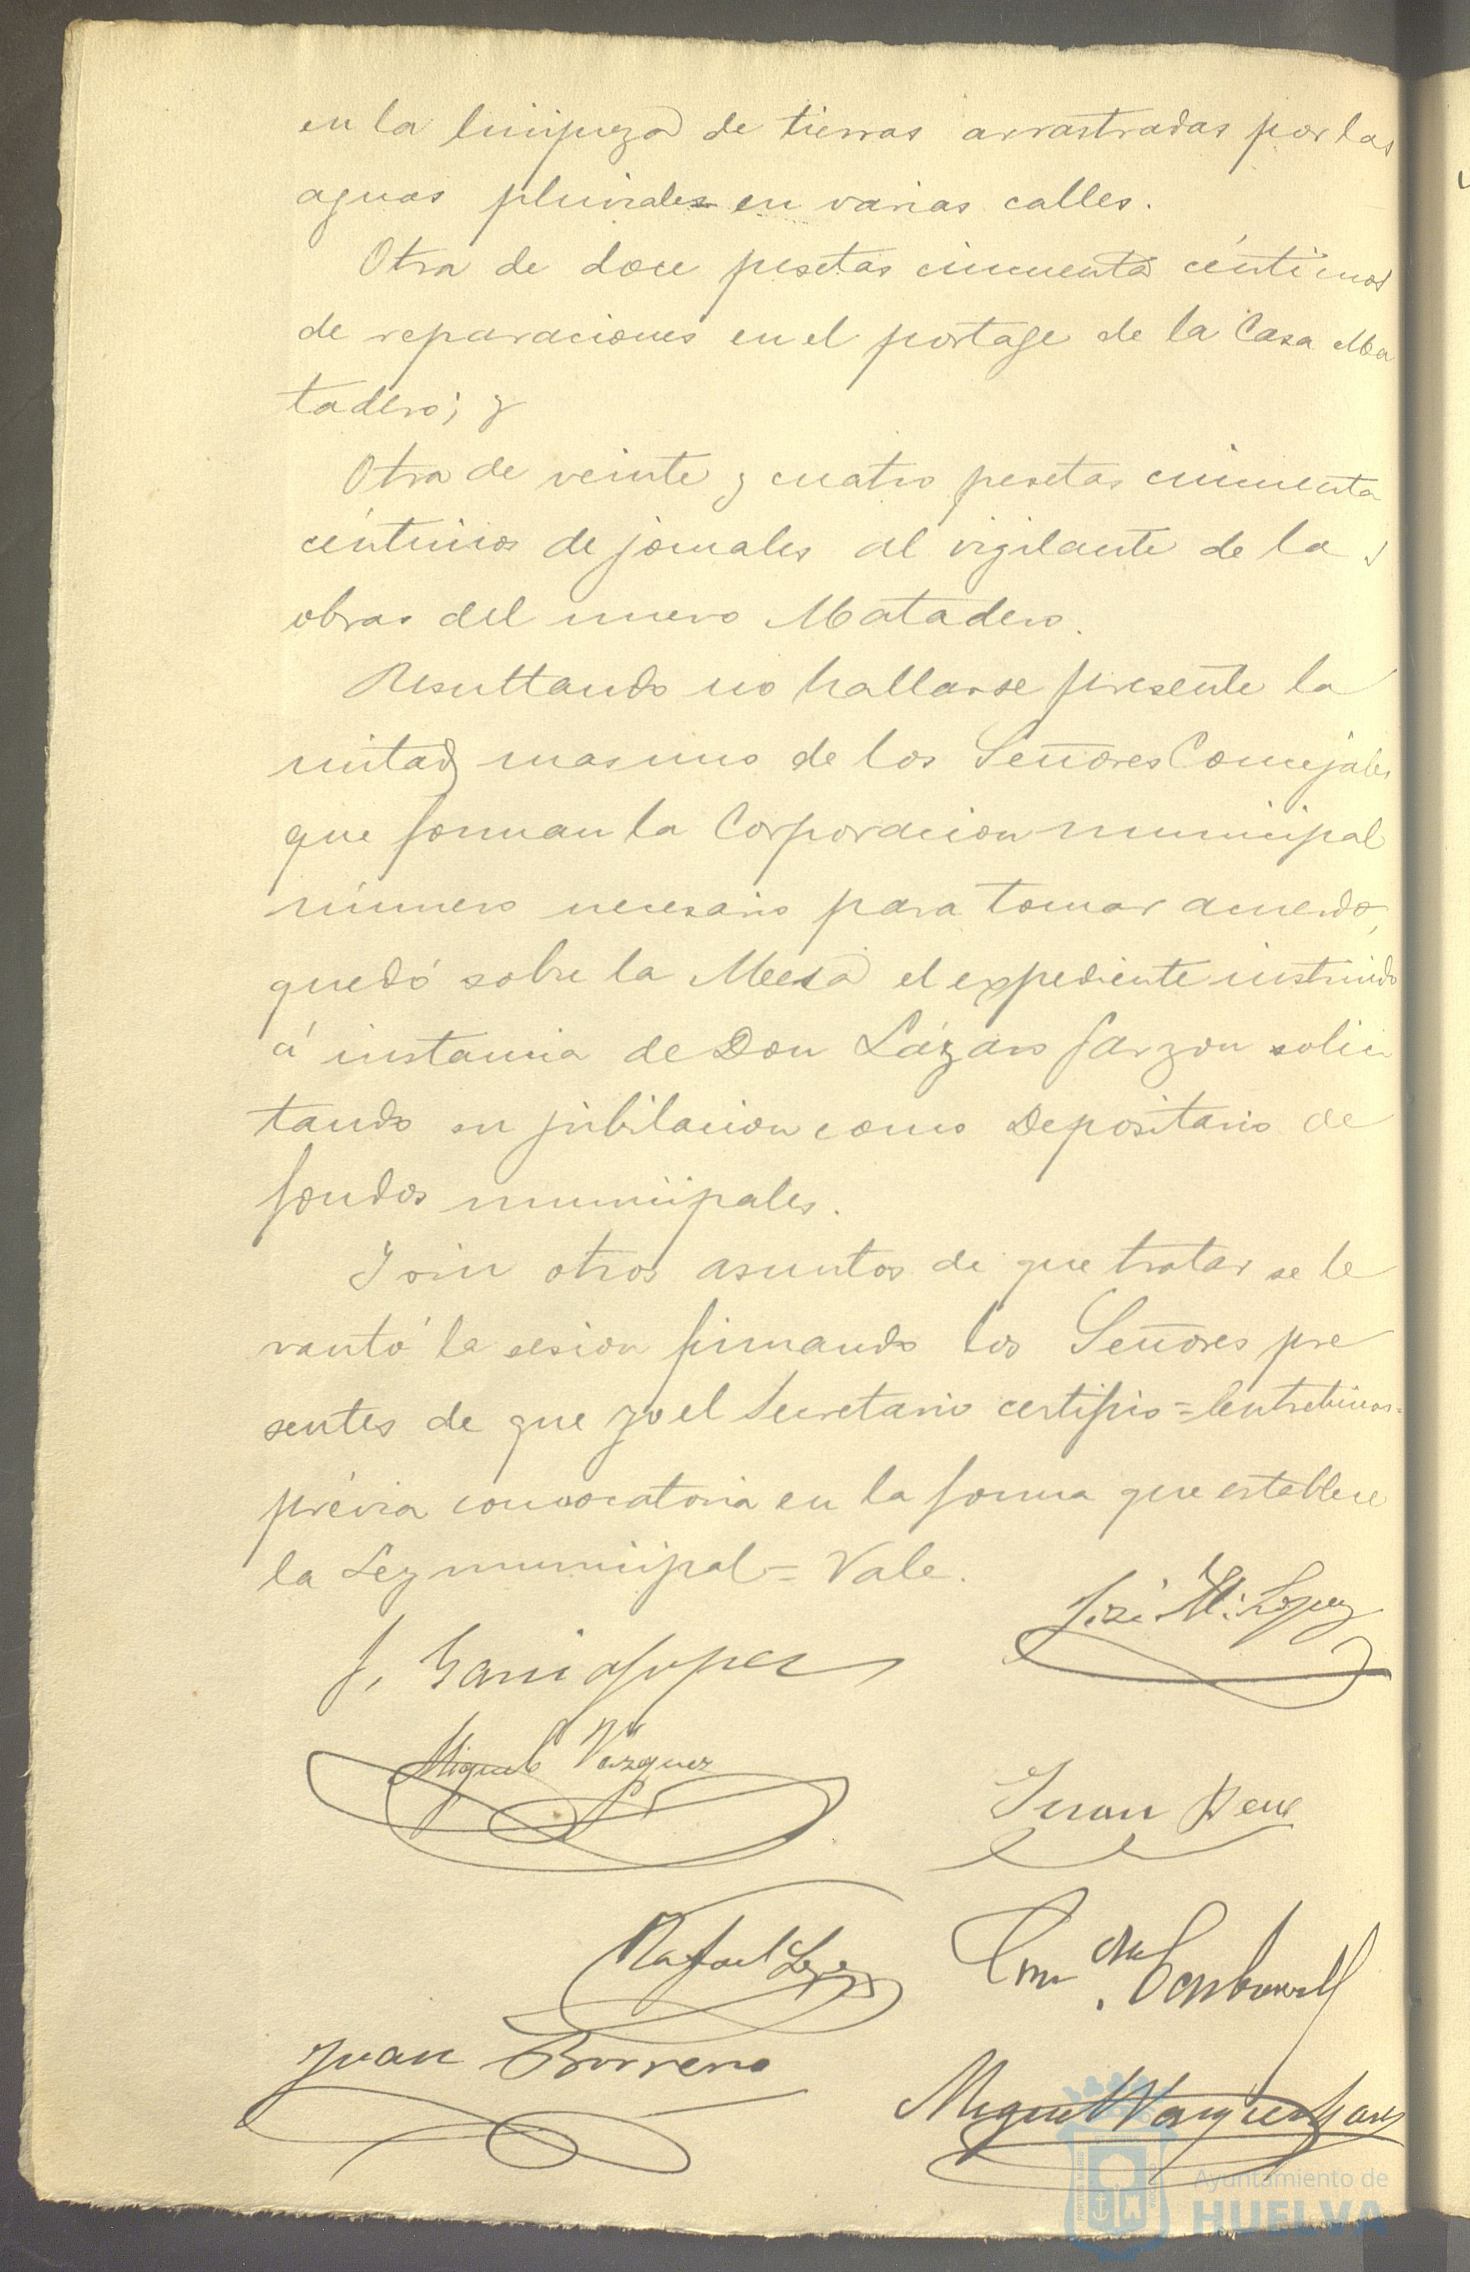 en la limpieza de tierras arrastradas por las
aguas pluviales en varias calles.
Otra de doce pesetas cincuenta céntimos
de reparaciones en el portage de la Casa Ma
tadero; y
Otra de veinte y cuatro pesetas cincuenta
céntimos de jornales al vigilante de las
obras del nuevo Matadero.
Resultando no hallarse presente la
mitad mas uno de los Señores Concejales
que forman la Corporacion municipal
número necesario para tomar acuerdo,
quedó sobre la Mesa el expediente instruido
á instancia de Don Lázaro Garzon solici
tando su jubilacion como Depositario de
fondos municipales.
Y sin otros asuntos de que tratar se le
vantó la sesion firmando los Señores pre
sentes de que yo el Secretario certifico = Entrelineas =
prévia convocatoria en la forma que establece
la Ley municipal = Vale.
José M. Lopez
J. Garcia Lopez
Miguel Vazquez
Juan
Rafael Lopez
Juan Borrero
Miguel Vazquez
Ayuntamiento de
HUELVA